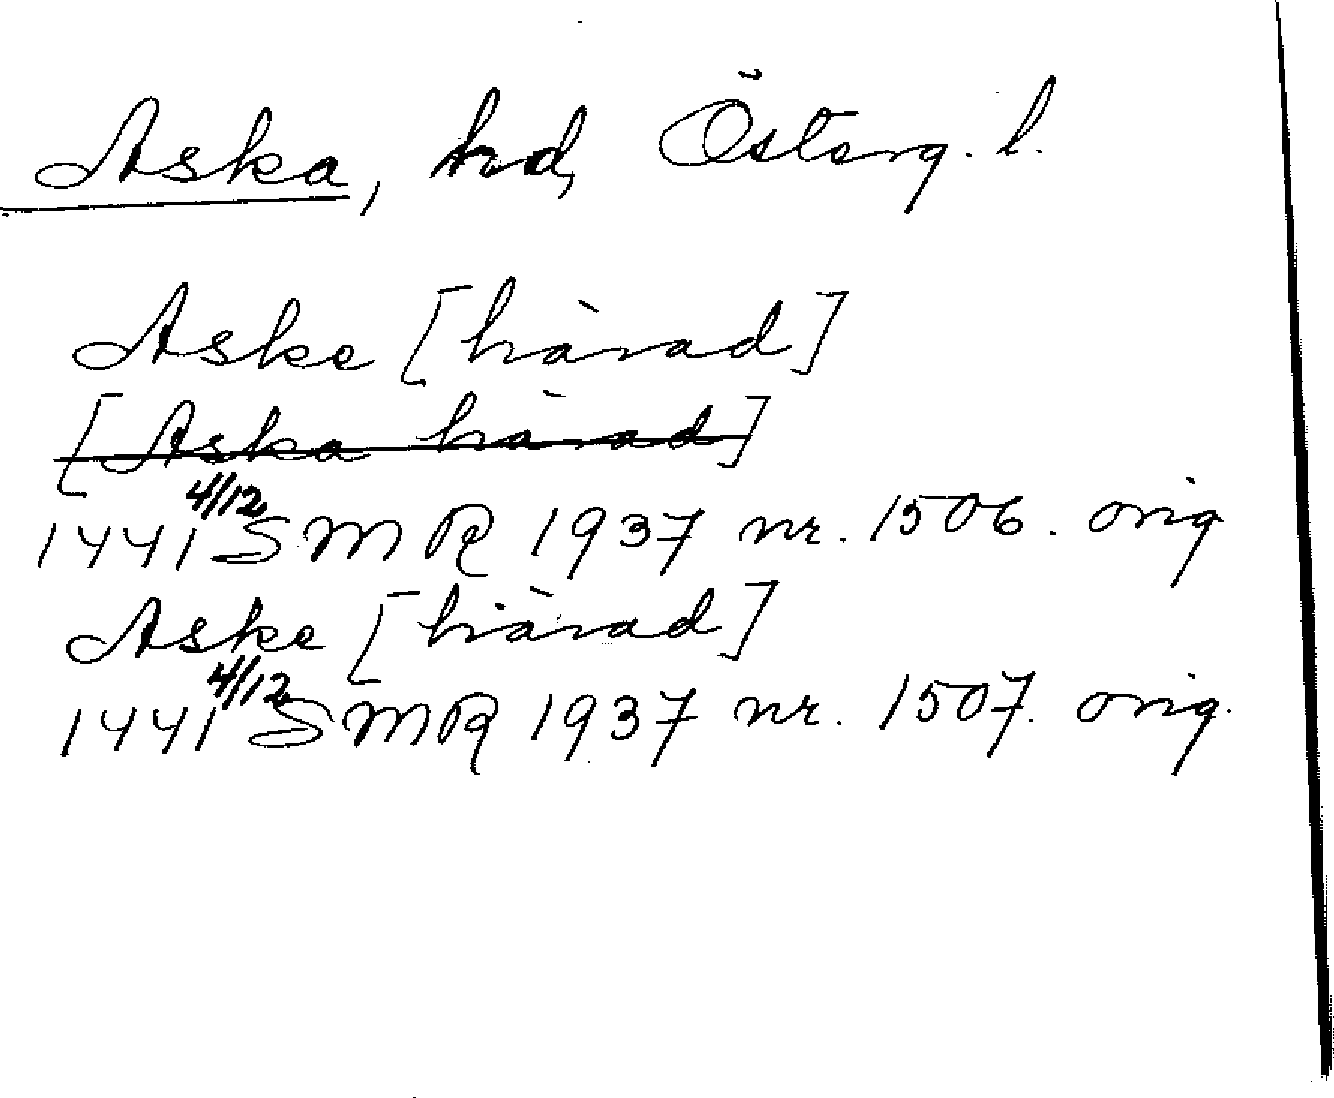 Aska, hd, Österg. l.
Aske [härad]
[Aska härad]
1441 4/12 SMR 1937 nr. 1506. orig
Aske [härad]
1441 4/12 SMR 1937 nr. 1507. orig.